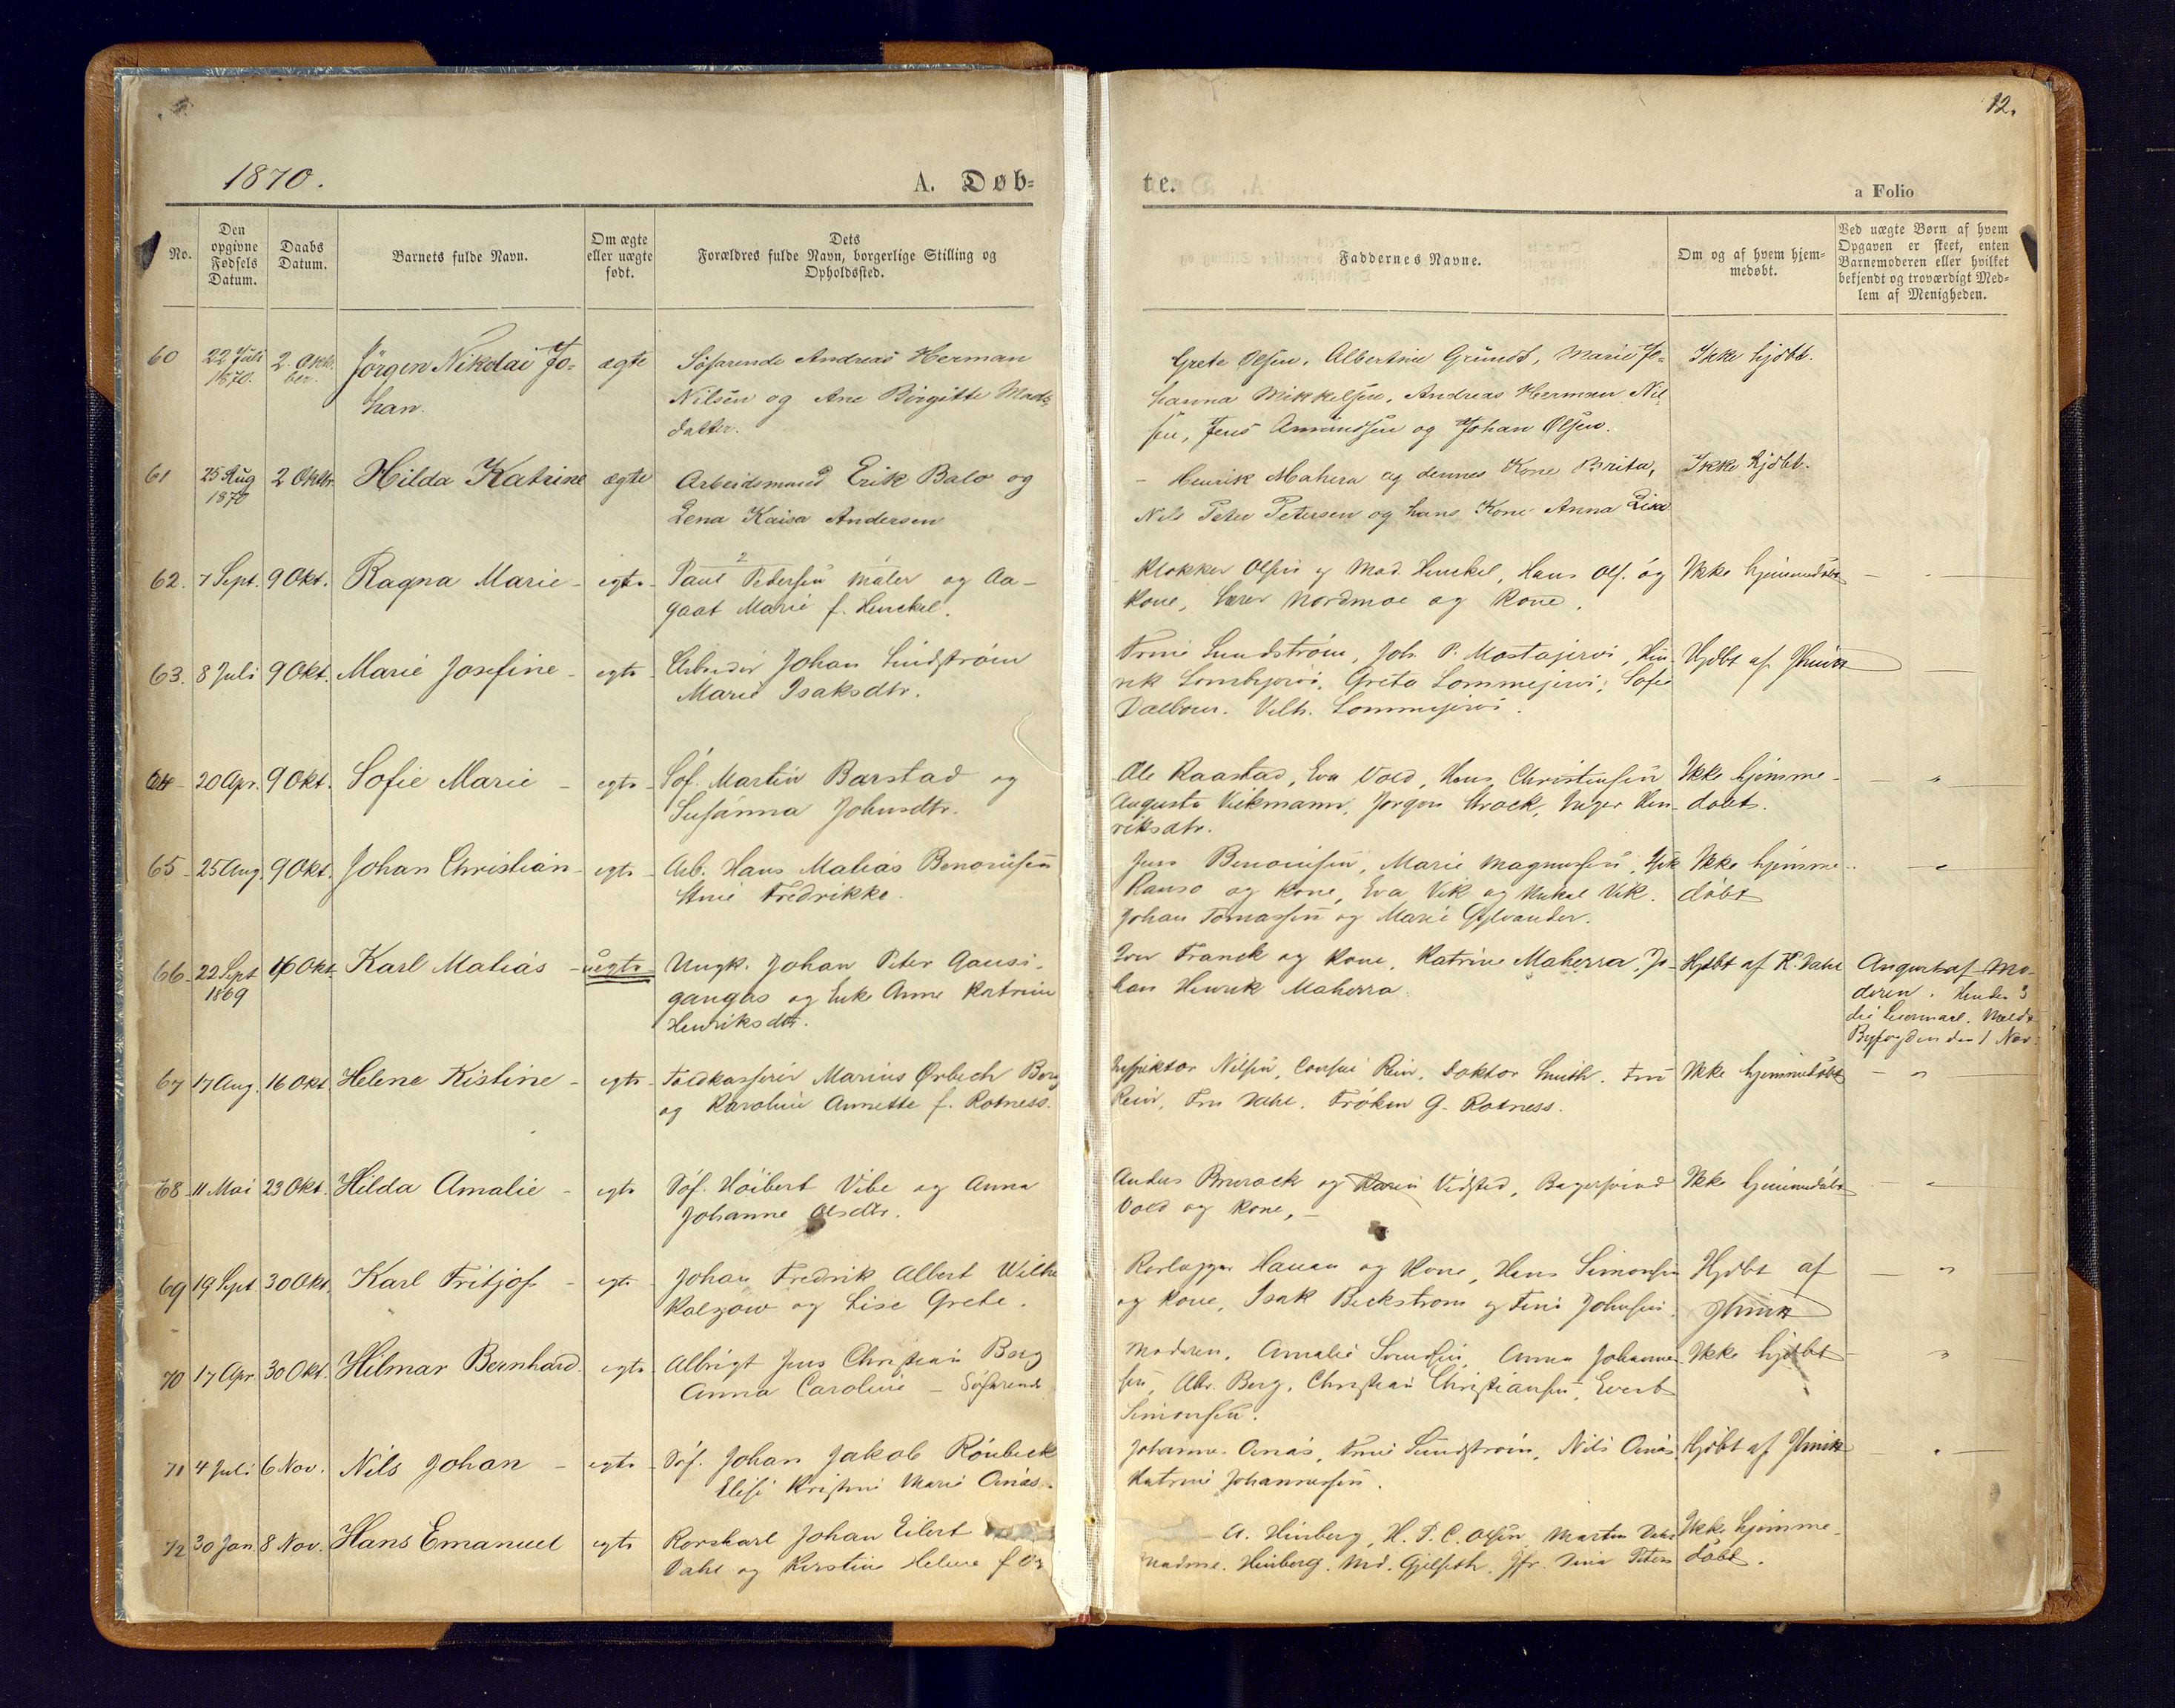 12.
1870.
A. Døb=
te.
a Folio
No.
Den
opgivne
Fødsels
Datum.
Daabs
Datum.
Barnets fulde Navn.
Om ægte
eller uægte
født.
Dets
Forældres fulde Navn, borgerlige Stilling og
Opholdssted.
Faddernes Navne.
Om og af hvem hjem-
medøbt.
Ved uægte Børn af hvem
Opgaven er skeet, enten
Barnemoderen eller hvilket
bekjendt og troværdigt Med-
lem af Menigheden.
60
22 Juli
1870.
2. Okto-
ber.
Jörgen Nikolai Jo-
han.
ægte
Söfarende Andreas Herman
Nilsen og Ane Birgitte Mads-
datter.
Grete Olsen, Albertine Grund, Marie Jo-
hanna Mikkelsen, Andreas Herman Nil-
sen, Jens Amundsen og Johan Olsen.
Ikke hjdbt.
61
25 Aug
1870
2 Oktbr.
Hilda Katrine
ægte
Arbeidsmand Erik Balo og
Lena Kaisa Andersen
- Henrik Mahera og dennes Kone Brita,
Nils Peter Petersen og hans Kone Anna Lisa
Ikke hjdbt.
62.
7 Sept.
9 Okt.
Ragna Marie -
egte -
Paul Pedersen Maler og Aa-
gaat Marie f. Henckel.
Klokker Olsen og Mad. Henckel, Hans Ols. og
Kone, Lærer Nordmoe og Kone.
Ikke hjemmedöbt
63.
8 Juli
9 Okt.
Marie Josefine -
egte -
Arbeider Johan Lindström
Marie Isaksdtr.
Sundström, Joh. P. Mostajervi, Hen-
rik Greta Lommejervi, Sofie
Vilh. Lommejervi.
Hjdbt af
64 -
20 Apr.
9 Okt.
Sofie Marie -
egte -
Söf. Martin Barstad og
Susanna Johnsdtr.
Ole Raastad, Eva Vold, Hans Christensen
Augusta Viekmann, Jörgen Strock, Inger Hen-
riksdtr.
Ikke hjemme-
döbt.
65 -
25 Aug.
9 Okt.
Johan Christian -
egte -
Arb. Hans Matias Benonisen
Fredrikke.
Jens Benonisen, Marie Magnussen,
og Kone, Eva Vik og Mikal Vik.
Johan Tomassen og Marie Sylvander.
Ikke hjemme-
döbt
66 -
22 Sept
1869
16 Okt
Karl Matias -
uegte
Ungk. Johan Peter Gausi-
gangas og Enke Anne Katrine
Henriksdtr.
Franck og Kone, Katrine Maherra, Jo-
han Henrik Maherra.
Hjdbt af K. Dahl
Angivet af Mo-
deren. Hendes 3
die Leiermaal. Meldt
Byfogden den 1 Nov.
67
17 Aug.
16 Okt
Helene Kistine -
egte -
Toldkasserer Marius Ørbech Berg
og Karoline Annette f. Rotness.
Inspektör Nilsen, Consul Rein, Doktor Smith. Fru
Rein, Fru Dahl. Fröken G. Rotness.
Ikke hjemmedöbt
68 -
11 Mai
23 Okt.
Hilda Amalie -
egte
Söf. Höibert Vibe og Anna
Johanne Olsdtr.
Anders Brurock og Karen Vidsted, Bagersvend
Vold og Kone, -
Ikke hjemmedöbt
69
19 Sept
30 Okt.
Karl Fritjof -
egte -
Johan Fredrik Albert Wilhe
Kalzow og Lise Grete.
Hauan og Kone, Hans Simonsen
og Kone, Isak Beckstrom og Johnsen.
Hjdbt af
70
17 Apr
30 Okt.
Hilmar Bernhard.
egte -
Albrigt Jens Christian Berg
Anna Caroline - Söfarende
Moderen, Amalie Svendsen, Anna Johanne-
sen, Alb. Berg, Christian Christiansen, Evert
Simonsen.
Ikke hjdbt
71
4 Juli
6 Nov.
Nils Johan -
egte -
Söf. Johan Jakob Rönbeck
Elise Kristine Marie Anas.
Johanne Anas, Sundström, Nils Anas
Katrine Johannessen.
Hjdbt af
72
30 Jan
8 Nov.
Hans Emanuel
egte
Rorskarl Johan Eilert
Dahl og Kirstine Helene f.
A. Hinberg, H. P. C. Olsen Martin
Madme. Hinberg. Md. Gjelseth, Jfr. Peters
Ikke hjemme-
döbt.